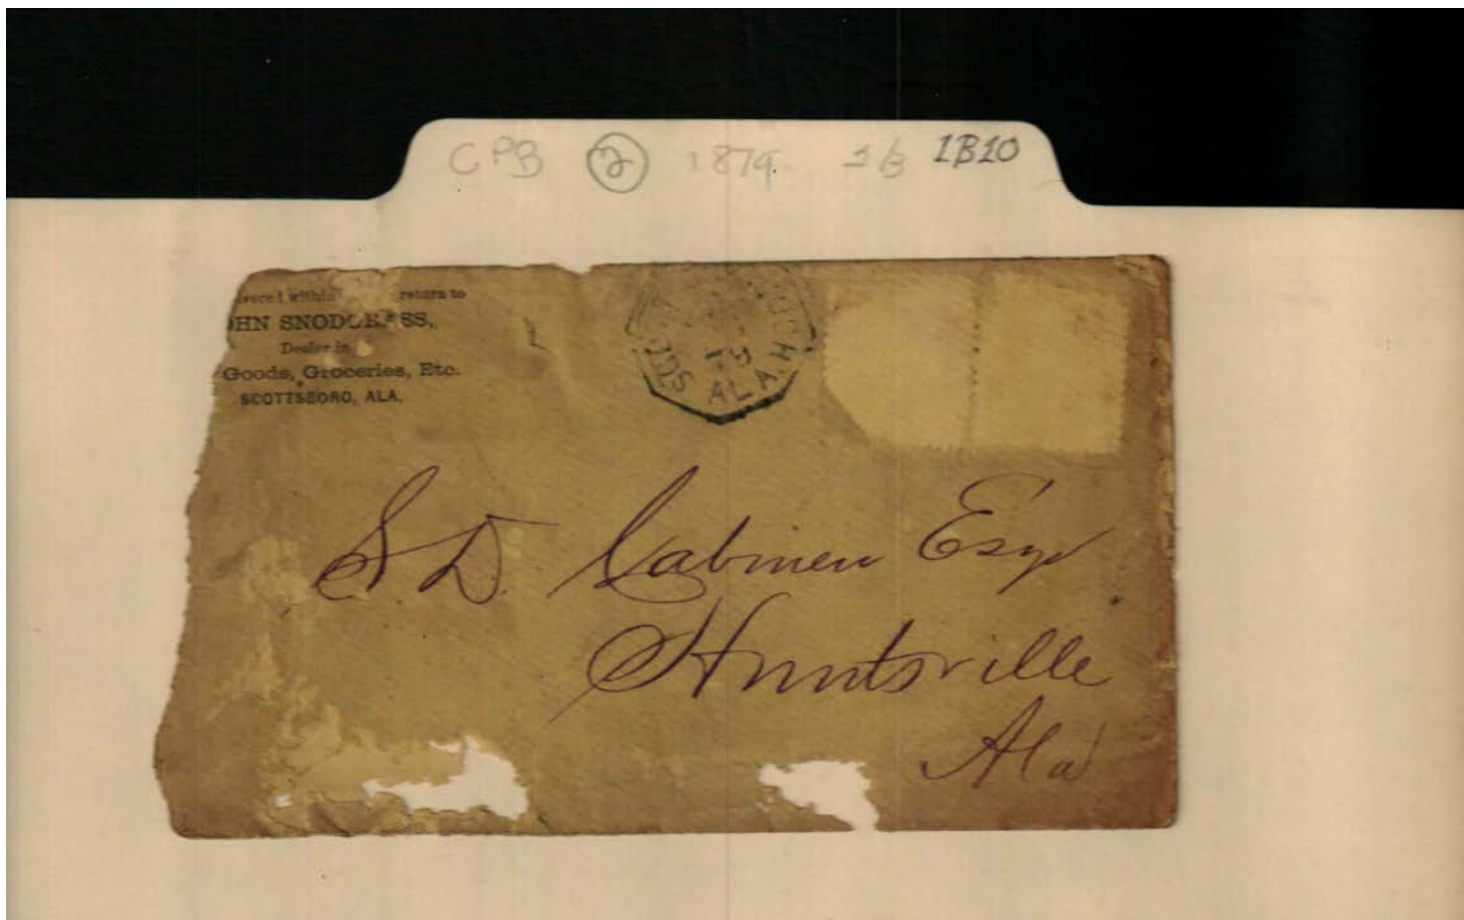 CPB 2 1879 1B10
vered within return to
HN SNODGRASS,
Dealer in
Goods, Groceries, Etc.
SCOTTSBORO, ALA.
19
ALA.
S D. Cabiness Esqr
Huntsville
Ala